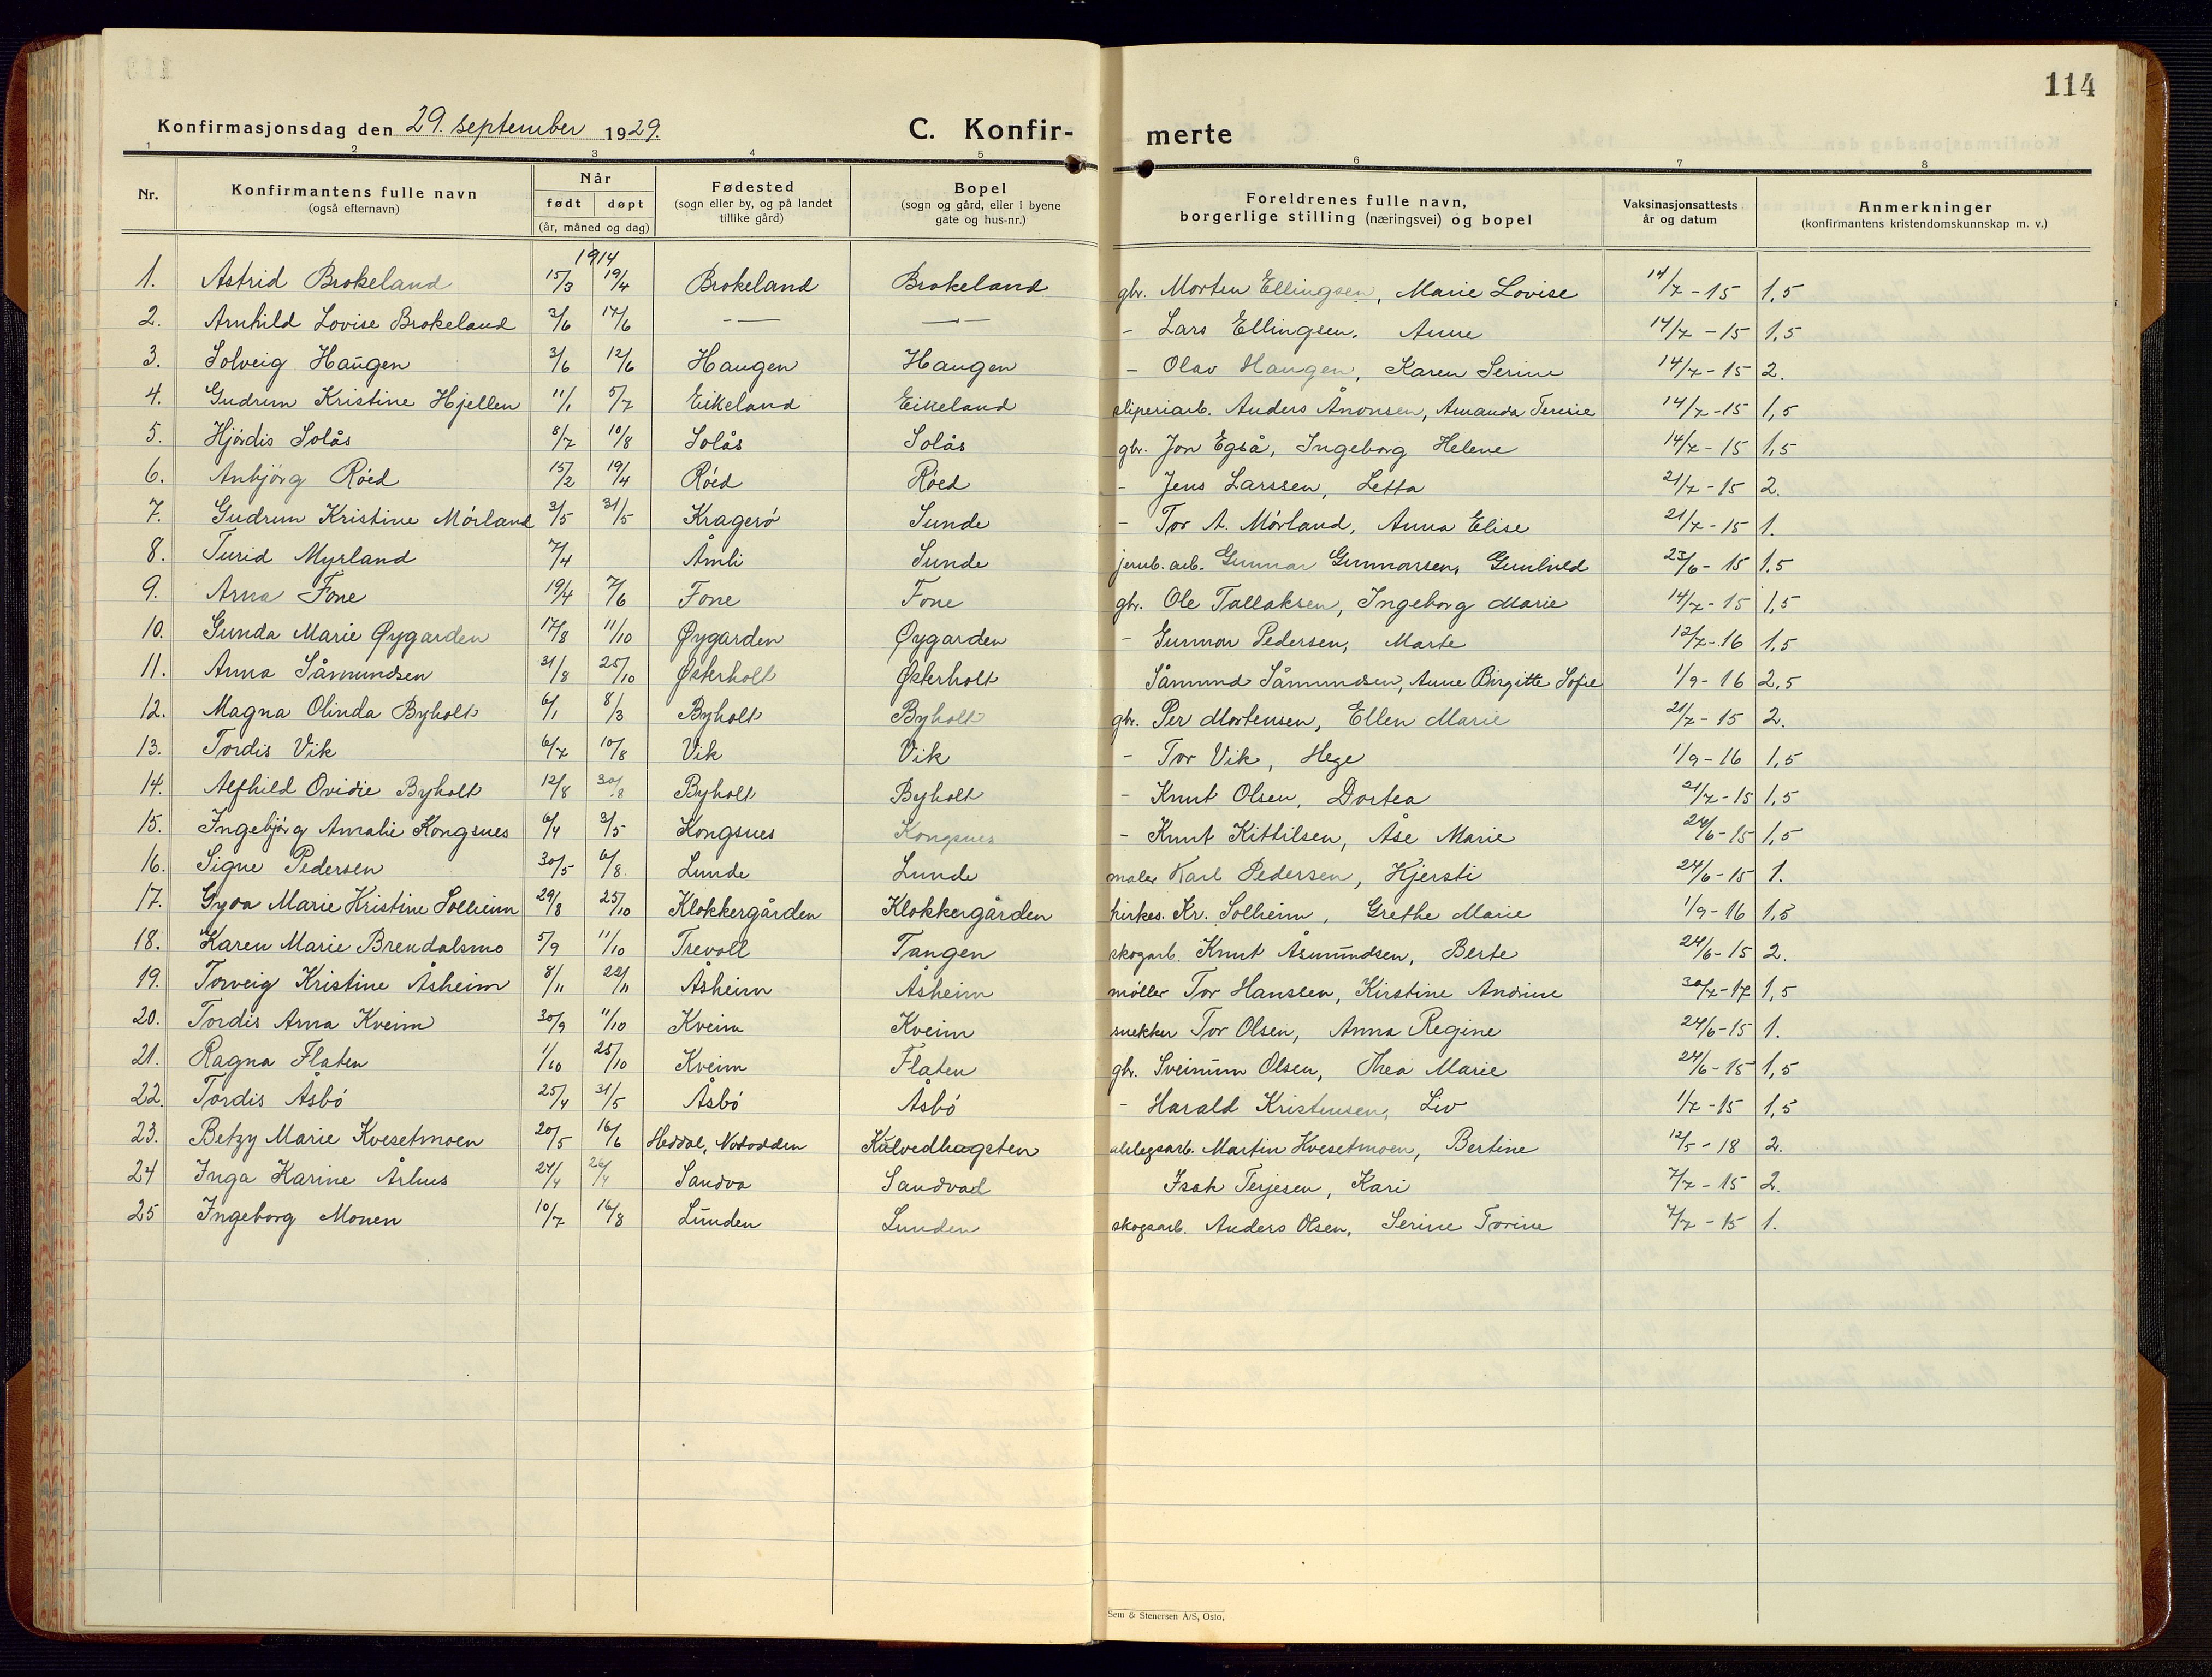 114
Konfirmasjonsdag den 29. september 1929. C. Konfir- merte
1 2 3 4 5 6 7 8
Nr. Konfirmantens fulle navn (også efternavn) Når født døpt (år, måned og dag) Fødested (sogn eller by, og på landet tillike gård) Bopel (sogn og gård, eller i byene gate og hus-nr.) Foreldrenes fulle navn, borgerlige stilling (næringsvei) og bopel Vaksinasjonsattests år og datum Anmerkninger (konfirmantens kristendomskunnskap m. v.)
1914
1. Astrid Brokeland 15/3 19/4 Brokeland Brokeland gbr. Morten Ellingsen, Marie Lovise 14/7 - 15 1,5
2. Arnhild Lovise Brokeland 3/6 14/6 - — — - Lars Ellingsen, Anne 14/7 - 15 1,5
3. Solveig Haugen 3/6 12/6 Haugen Haugen - Olav Haugen, Karen Serine 14/7 - 15 2.
4. Gudrun Kristine Hjellen 11/1 5/7 Eikeland Eikeland sliperiarb. Anders Ånonsen, Amanda Terese 14/7 - 15 1,5
5. Hjördis Solås 8/7 10/8 Solås Solås gbr. Jon Egså, Ingeborg Helene 14/7 - 15 1,5
6. Anbjörg Röed 15/2 19/4 Röed Röed - Jens Larssen, Letta 21/7 - 15 2.
7. Gudrun Kristine Mörland 3/5 31/5 Kragerö Sunde - Tor A. Mörland, Anna Elise 21/7 - 15 1.
8. Turid Myrland 7/4 Åmli Sunde jernb. arb. Gunnar Gunnarsen, Gunhild 23/6 - 15 1,5
9. Arna Fone 19/4 7/6 Fone Fone gbr. Ole Tallaksen, Ingeborg Marie 14/7 - 15 1,5
10. Gunda Marie Øygarden 17/8 11/10 Øygarden Øygarden - Gunnar Pedersen, Marte 12/7 - 16 1,5
11. Anna Såmundsen 31/8 25/10 Østerholt Østerholt Såmund Såmundsen, Anne Birgitte Sofie 1/9 - 16 2,5
12. Magna Olinda Byholt 6/1 8/3 Byholt Byholt gbr. Per Mortensen, Ellen Marie 21/7 - 15 2.
13. Tordis Vik 6/7 10/8 Vik Vik - Tor Vik, Hege 1/9 - 16 1,5
14. Alfhild Ovidie Byholt 12/8 30/8 Byholt Byholt - Knut Olsen, Dortea 21/7 - 15 1,5
15. Ingebjörg Amalie Kongsnes 6/4 3/5 Kongsnes Kongsnes - Knut Kittilsen, Åse Marie 24/6 - 15 1,5
16. Signe Pedersen 30/5 6/8 Lunde Lunde maler Karl Pedersen, Kjersti 24/6 - 15 1.
17. Gyda Marie Kristine Solheim 29/8 25/10 Klokkergården Klokkergården kirkes. Kr. Solheim, Grethe Marie 1/9 - 16 1,5
18. Karen Marie Brendalsmo 5/9 11/10 Trevoll Tangen skogarb. Knut Åsmundsen, Berte 24/6 - 15 2.
19. Torveig Kristine Åsheim 8/11 22/11 Åsheim Åsheim møller Tor Hanssen, Kirstine Andrine 30/7 - 17 1,5
20. Tordis Anna Kveim 30/9 11/10 Kveim Kveim snekker Tor Olsen, Anna Regine 24/6 - 15 1.
21. Ragna Flaten 1/10 25/10 Kveim Flaten gbr. Sveinum Olsen, Thea Marie 24/6 - 15 1,5
22. Tordis Åsbö 25/4 31/5 Åsbö Åsbö - Harald Kristensen, Liv 1/7 - 15 1,5
23. Betzy Marie Kvesetmoen 20/5 16/6 Heddal, Notodden Kålvedhagsten anlegsarb. Martin Kvesetmoen, Bertine 12/5 - 18 2.
24 Inga Karine Århus 24/4 26/4 Sandva Sandvad Isak Terjesen, Kari 7/7 - 15 2.
25 Ingeborg Monen 10/7 16/8 Lunden Lunden skogsarb. Anders Olsen, Serine Torine 7/7 - 15 1.
Sem & Stenersen A/S, Oslo.